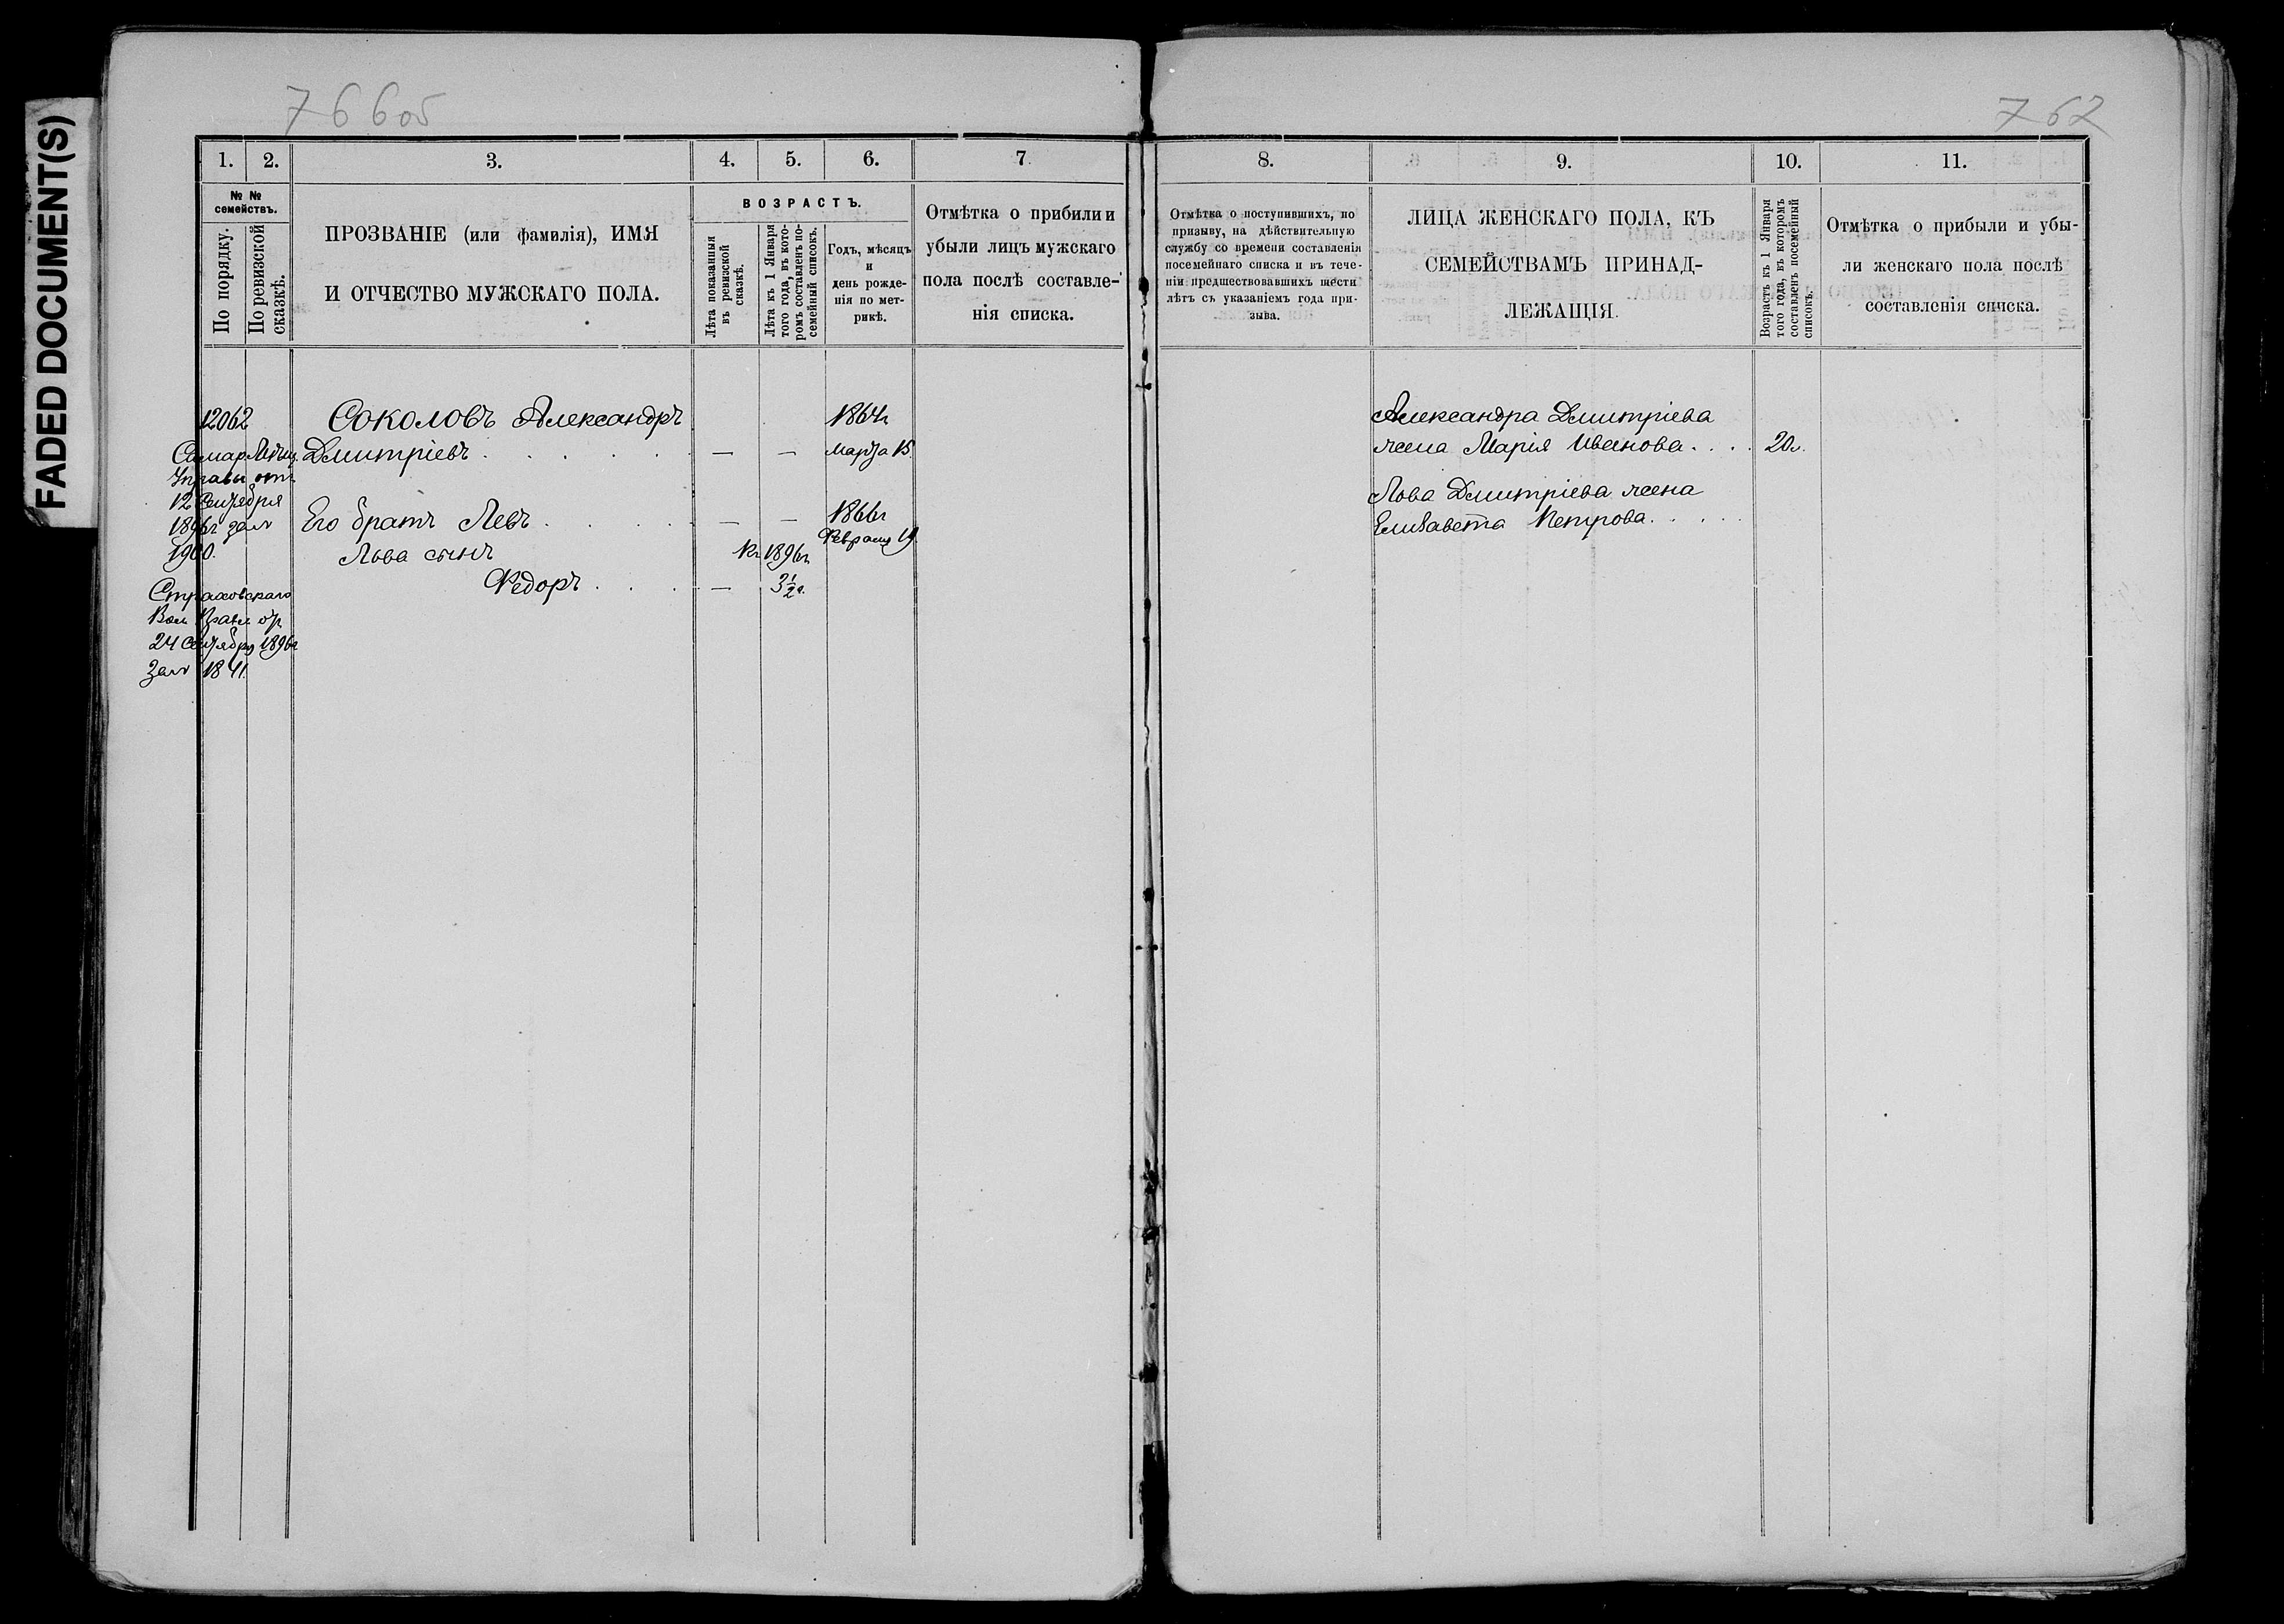 FADED DOCUMENT(S)
766об
762
1. 2. 3. 4. 5. 6. 7.
№ №
семействъ.
По порядку.
По ревизской
сказкѣ.
ПРОЗВАНІЕ (или фамилія), ИМЯ
И ОТЧЕСТВО МУЖСКАГО ПОЛА.
ВОЗРАСТЪ.
Лѣта показанныя
въ ревизской
сказкѣ.
Лѣта къ 1 Января
того года, въ кото-
ромъ составленъ по-
семейный списокъ.
Годъ, мѣсяцъ
и
день рожде-
нія по мет-
рикѣ.
Отмѣтка о прибыли и
убыли лицъ мужскаго
пола послѣ составле-
нія списка.
12062
Соколовъ Александръ
1864г
Самар. Мѣщ.
Дмитріевъ . . . . . — — Марта 15.
Управы отъ
12 Сентября
1896г за №
Его братъ Левъ . . . . — — 1866г
Февраля 19.
1900.
Льва сынъ
Къ 1896г
Федоръ . . . — 3½г.
Страховскаго
Вол. Правл. отъ
24 Сентября 1896г
За № 1841.
8. 9. 10. 11.
Отмѣтка о поступившихъ, по
призыву, на дѣйствительную
службу со времени составленія
посемейнаго списка и въ тече-
ніи предшествовавшихъ шести
лѣтъ съ указаніемъ года при-
зыва.
ЛИЦА ЖЕНСКАГО ПОЛА, КЪ
СЕМЕЙСТВАМЪ ПРИНАД-
ЛЕЖАЩІЯ.
Возрастъ къ 1 Января
того года, въ которомъ
составленъ посемейный
списокъ.
Отмѣтка о прибыли и убы-
ли женскаго пола послѣ
составленія списка.
Александра Дмитріева
жена Марія Иванова . . . 20г.
Лова Дмитріева жена
Елизавета Петрова . . . .